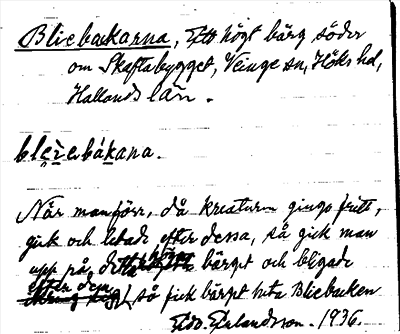 Bliebackarna, Ett högt bärg söder
om Skaftabygget, Veinge sn, Höks hd,
Hallands län.
blèi̯ebákana.
När man förr, då kreaturen gingo fritt,
gick och letade efter dessa, så gick man
upp på detta bärget och bligade
efter dem så fick bärget heta Bliebacken
Edv. Erlandsson. 1936.